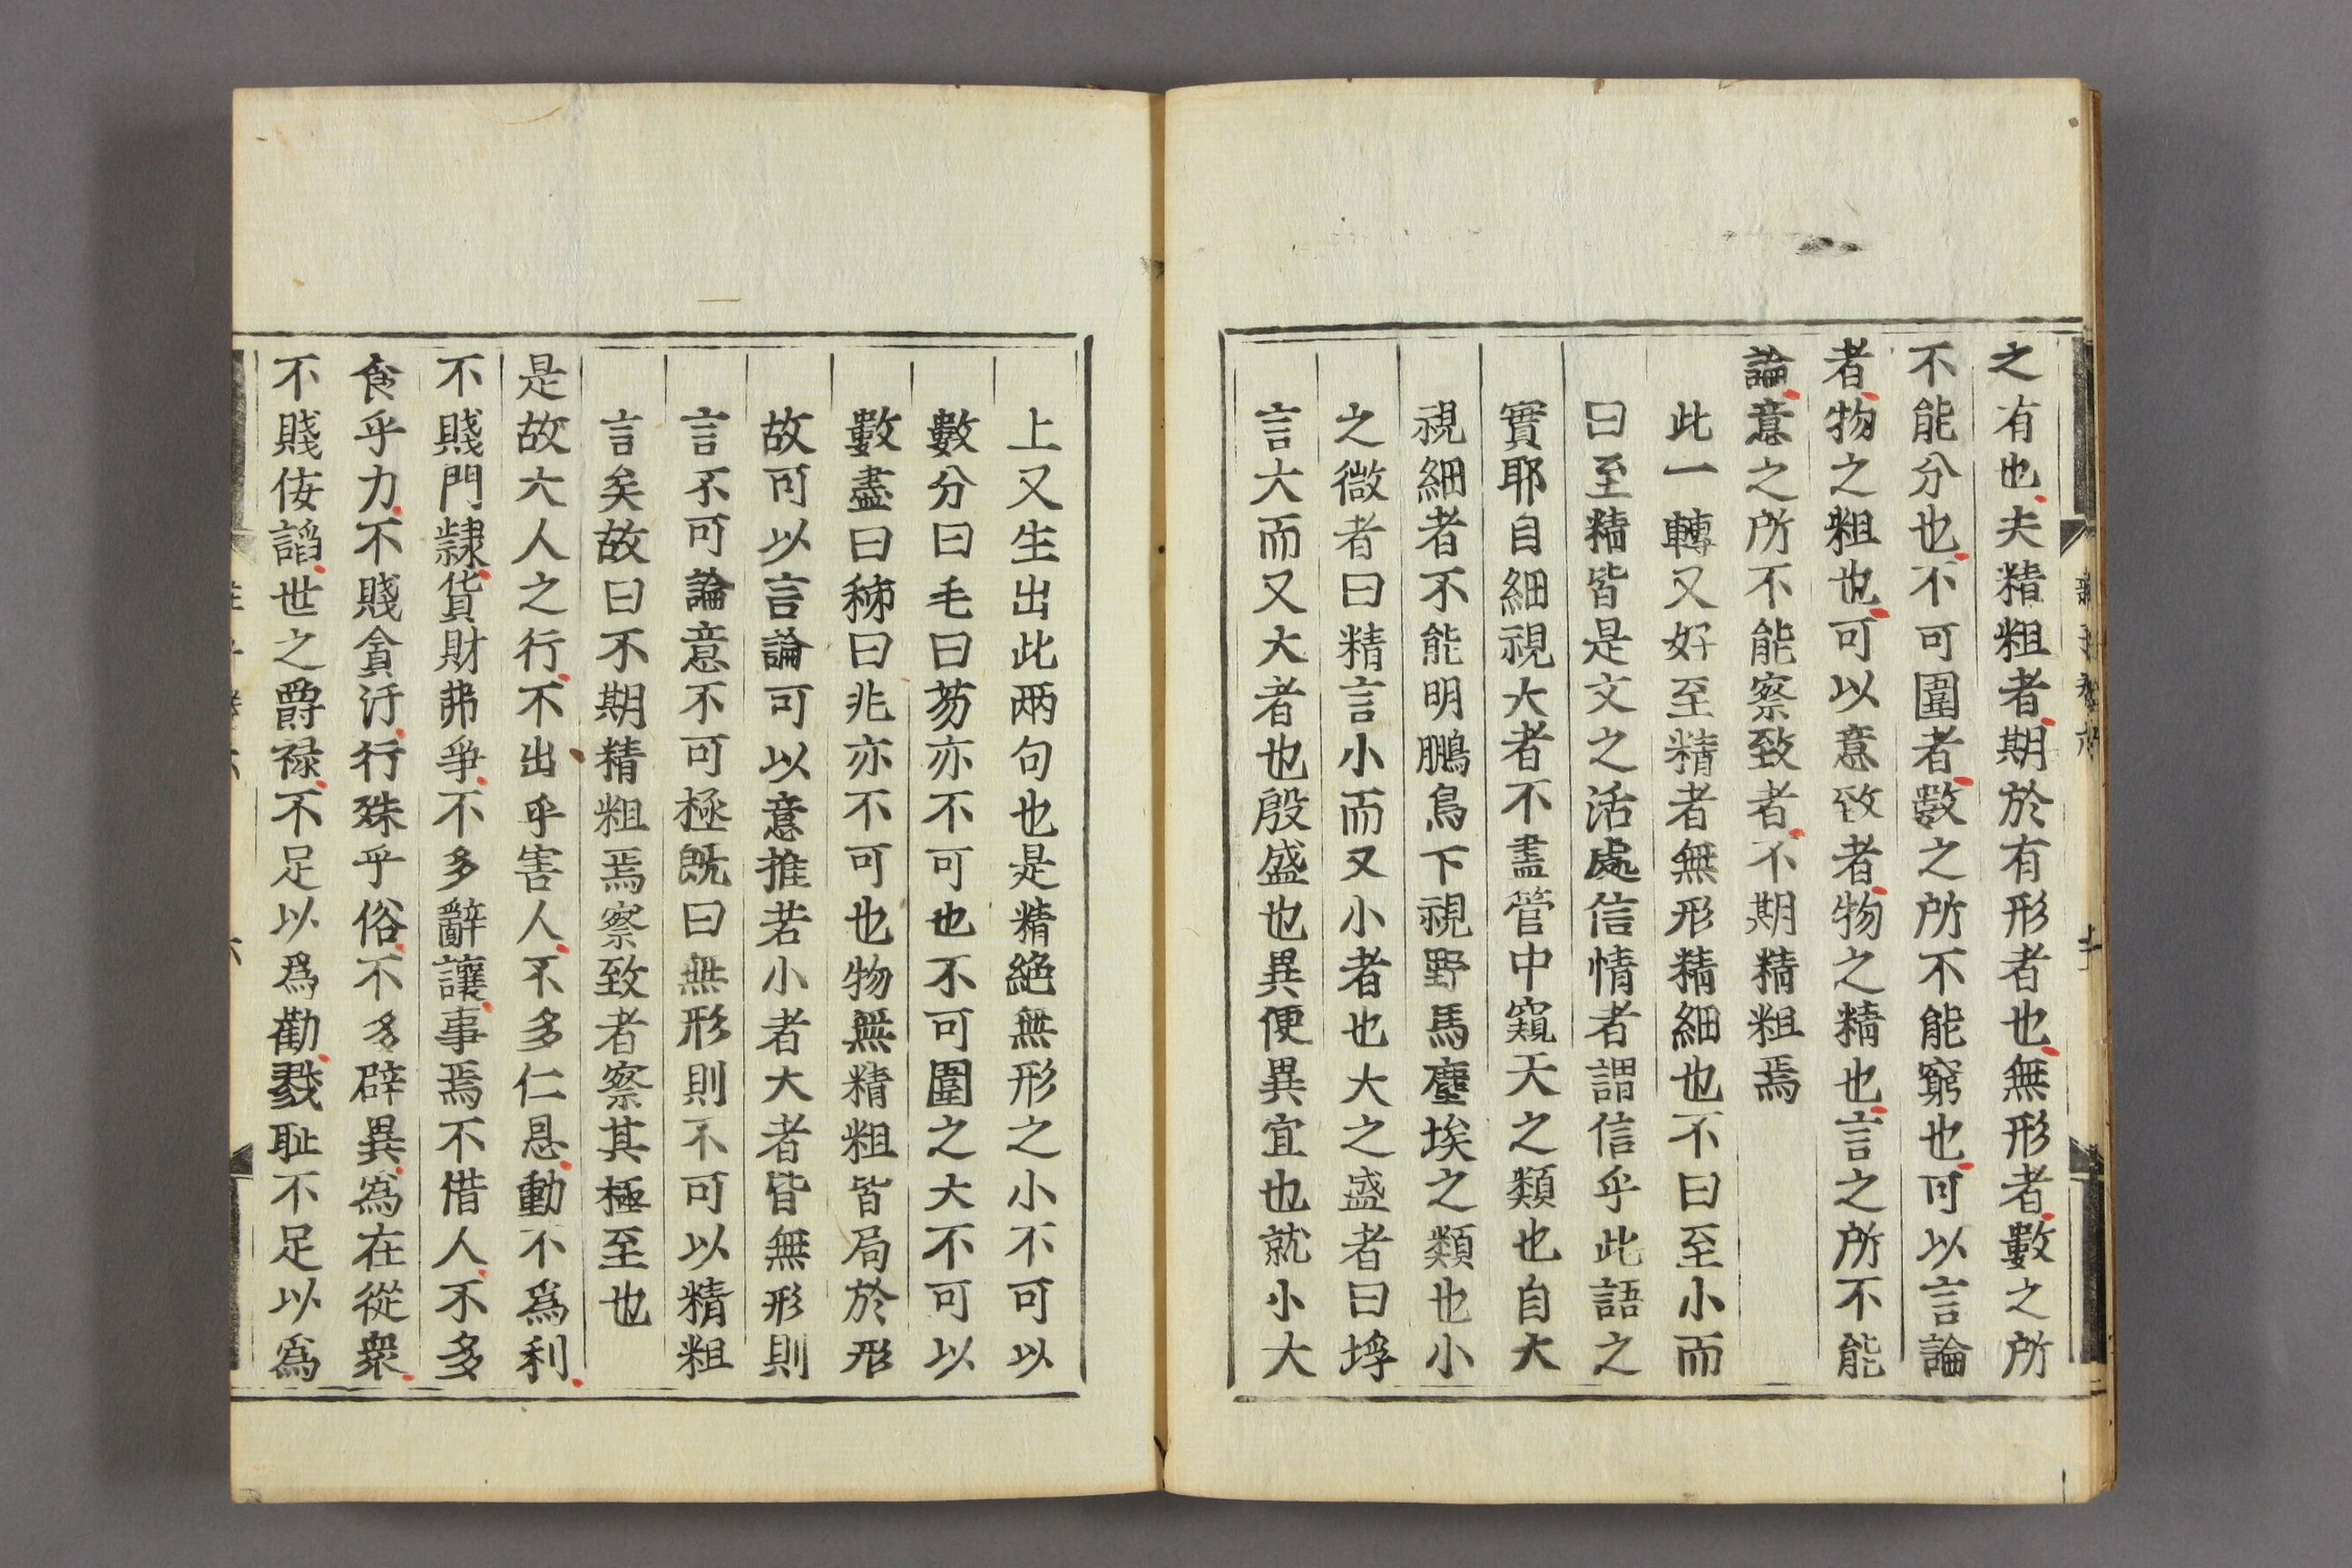 之有也夫精粗者期於有形者也無形者數之所
不能分也不可圍者數之所不能窮也可以言論
者物之粗也可以意致者物之精也言之所不能
論意之所不能察致者不期精粗焉
此一轉又好至精者無形精細也不曰至小而
曰至精皆是文之活處信情者謂信乎此語之
實耶自細視大者不盡管中窺天之類也自大
視細者不能明鵬鳥下視野馬塵埃之類也小
之微者曰精言小而又小者也大之盛者曰垺
言大而又大者也殷盛也異便異宜也就小大
上又生出此兩句也是精絕無形之小不可以
數分曰毛曰芴亦不可也不可圍之大不可以
數盡曰稊曰兆亦不可也物無精粗皆局於形
故可以言論可以意推若小者大者皆無形則
言不可論意不可極既曰無形則不可以精粗
言矣故曰不期精粗焉察致者察其極至也
是故大人之行不出乎害人不多仁恩動不爲利
不賤門隸貨財弗爭不多辭讓事焉不借人不多
食乎力不賤貪汙行殊乎俗不多辟異爲在從衆
不賤佞諂世之爵祿不足以爲勸戮恥不足以爲